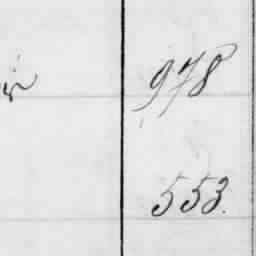 978
553.